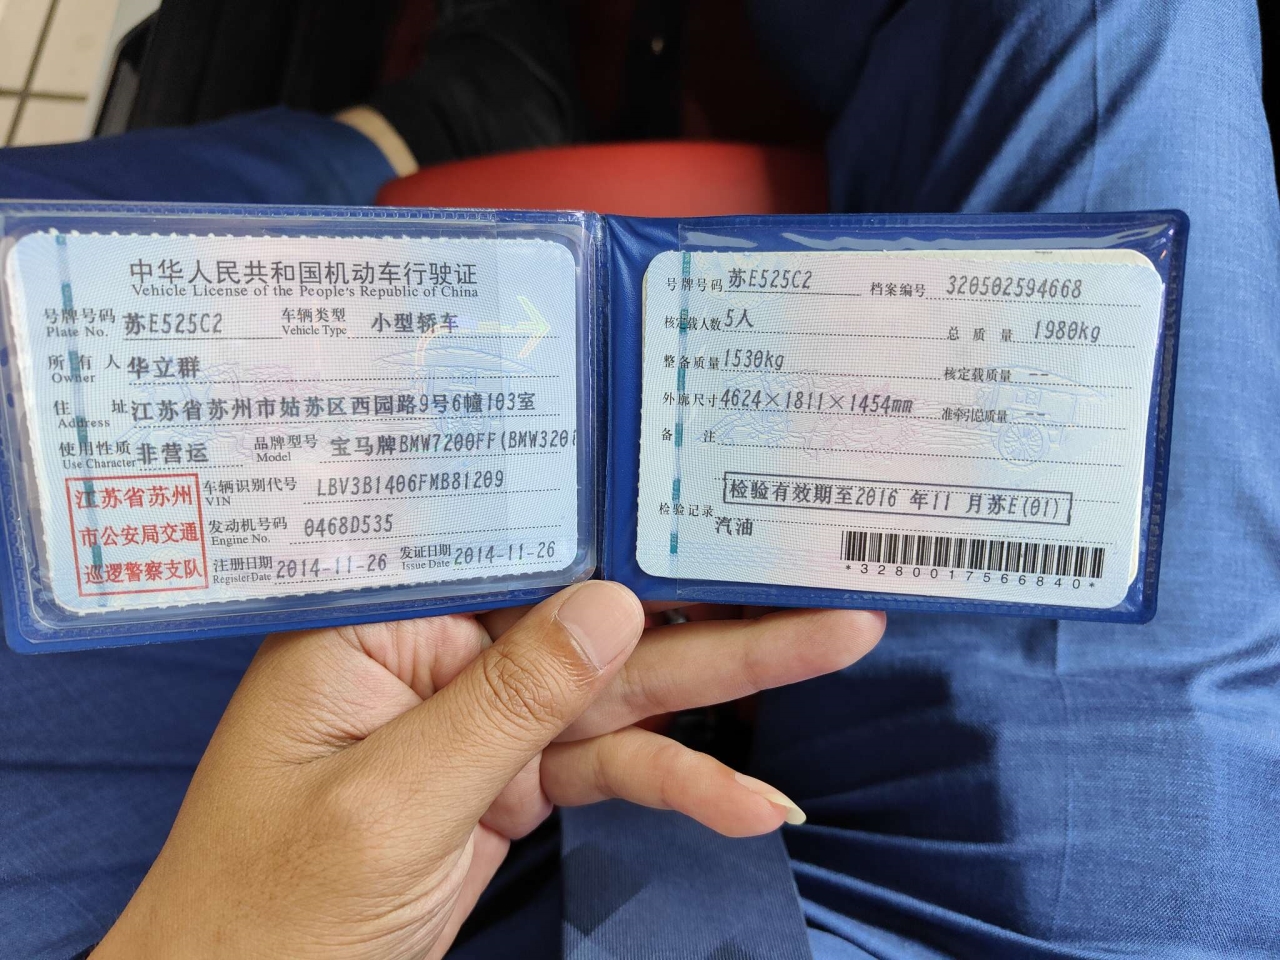 中华人民共和国机动车行驶证
Vehicle License of the People's Republic of China
号牌号码 苏E525C2 车辆类型 小型轿车
Plate No. Vehicle Type
所有人 华立群
Owner
住址 江苏省苏州市姑苏区西园路9号6幢103室
Address
使用性质 非营运 品牌型号 宝马牌BMW7200FF(BMW320
Use Character Model
江苏省苏州
市公安局交通
巡逻警察支队
车辆识别代号 LBV3B1406FMB81209
VIN
发动机号码 0468D535
Engine No.
注册日期 2014-11-26 发证日期 2014-11-26
Register Date Issue Date
号牌号码 苏E525C2 档案编号 320502594668
核定载人数 5人 总质量 1980kg
整备质量 1530kg 核定载质量 --
外廓尺寸 4624×1811×1454mm 准牵引总质量 --
备注
检验有效期至2016 年11 月苏E(01)
检验记录
汽油
*3280017566840*